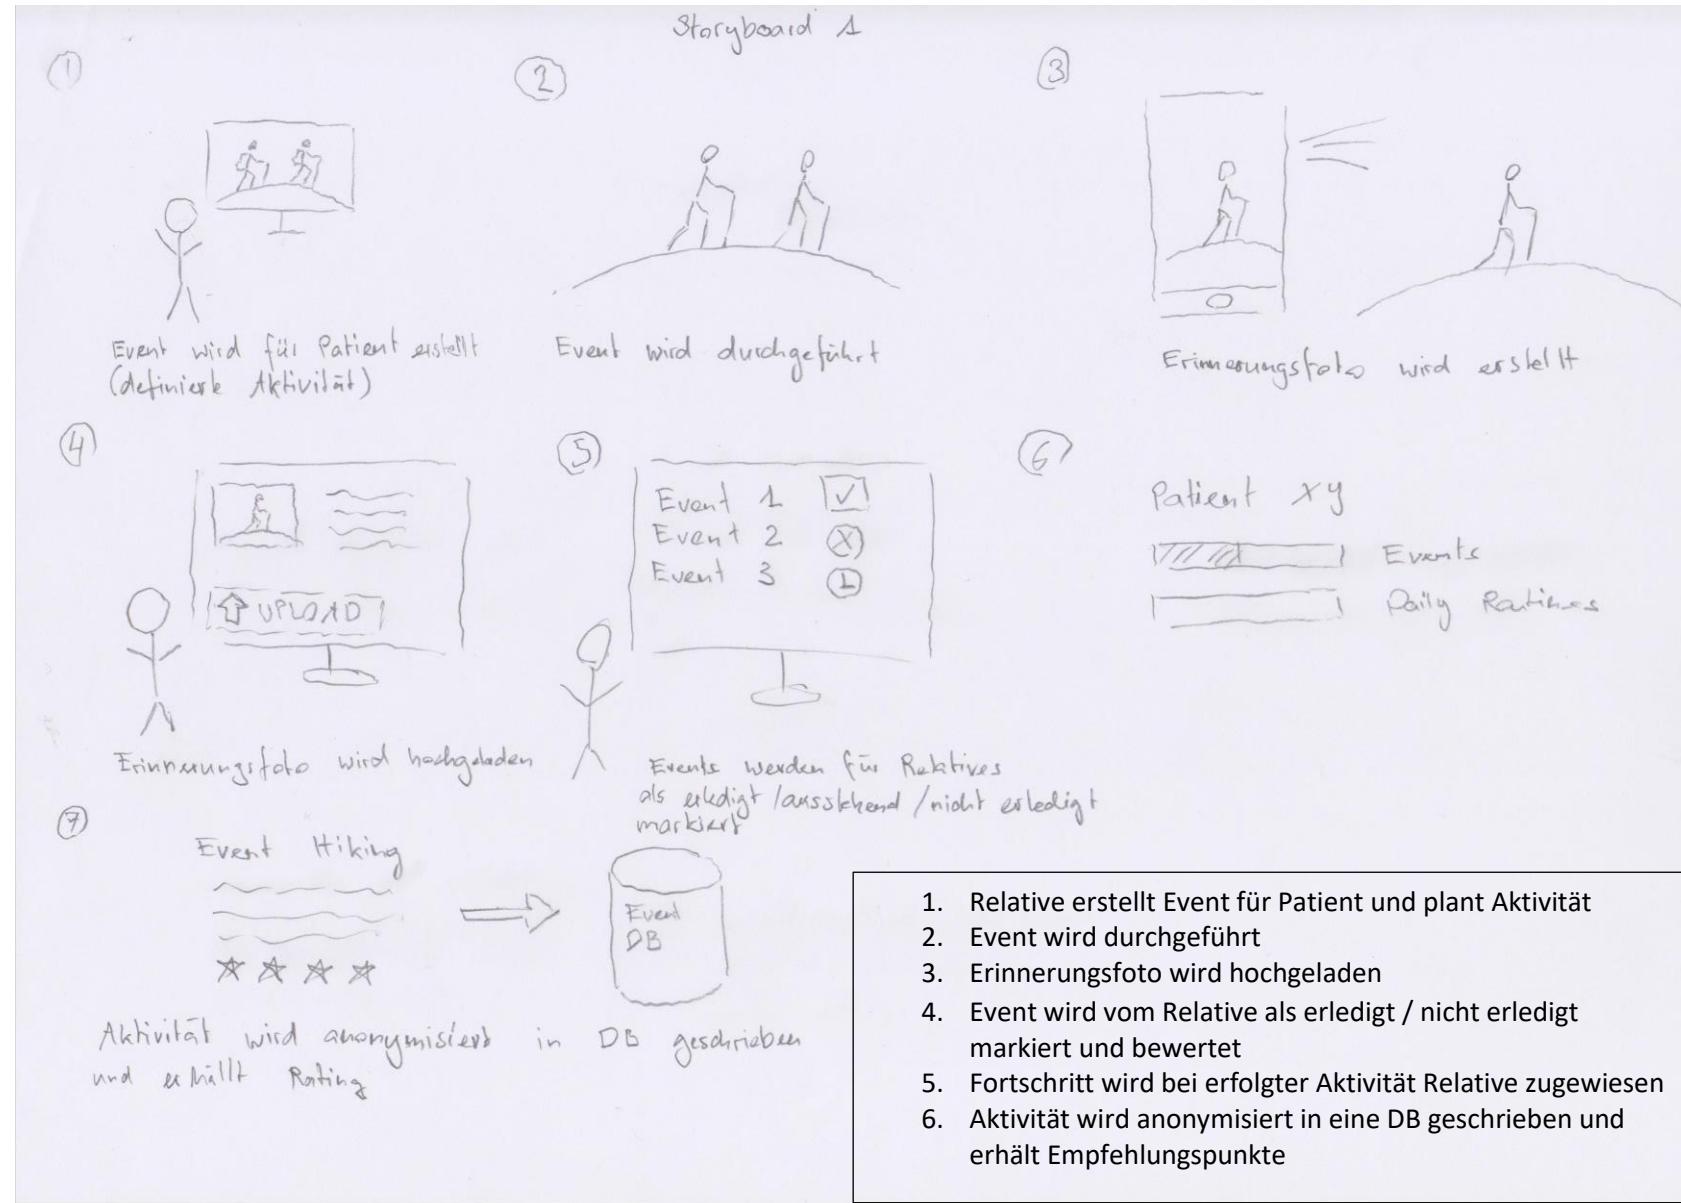 Storyboard 1
1
2
3
Event wird für Patient erstellt
(definierte Aktivität)
Event wird durchgeführt
Erinnerungsfoto wird erstellt
4
UPLOAD
Erinnerungsfoto wird hochgeladen
5
Event 1
Event 2
Event 3
Events werden für Relatives
als erledigt / ausstehend / nicht erledigt
markiert
6
Patient xy
Events
Daily Routines
7
Event Hiking
Event
DB
Aktivität wird anonymisiert in DB geschrieben
und erhällt Rating
1. Relative erstellt Event für Patient und plant Aktivität
2. Event wird durchgeführt
3. Erinnerungsfoto wird hochgeladen
4. Event wird vom Relative als erledigt / nicht erledigt
markiert und bewertet
5. Fortschritt wird bei erfolgter Aktivität Relative zugewiesen
6. Aktivität wird anonymisiert in eine DB geschrieben und
erhält Empfehlungspunkte